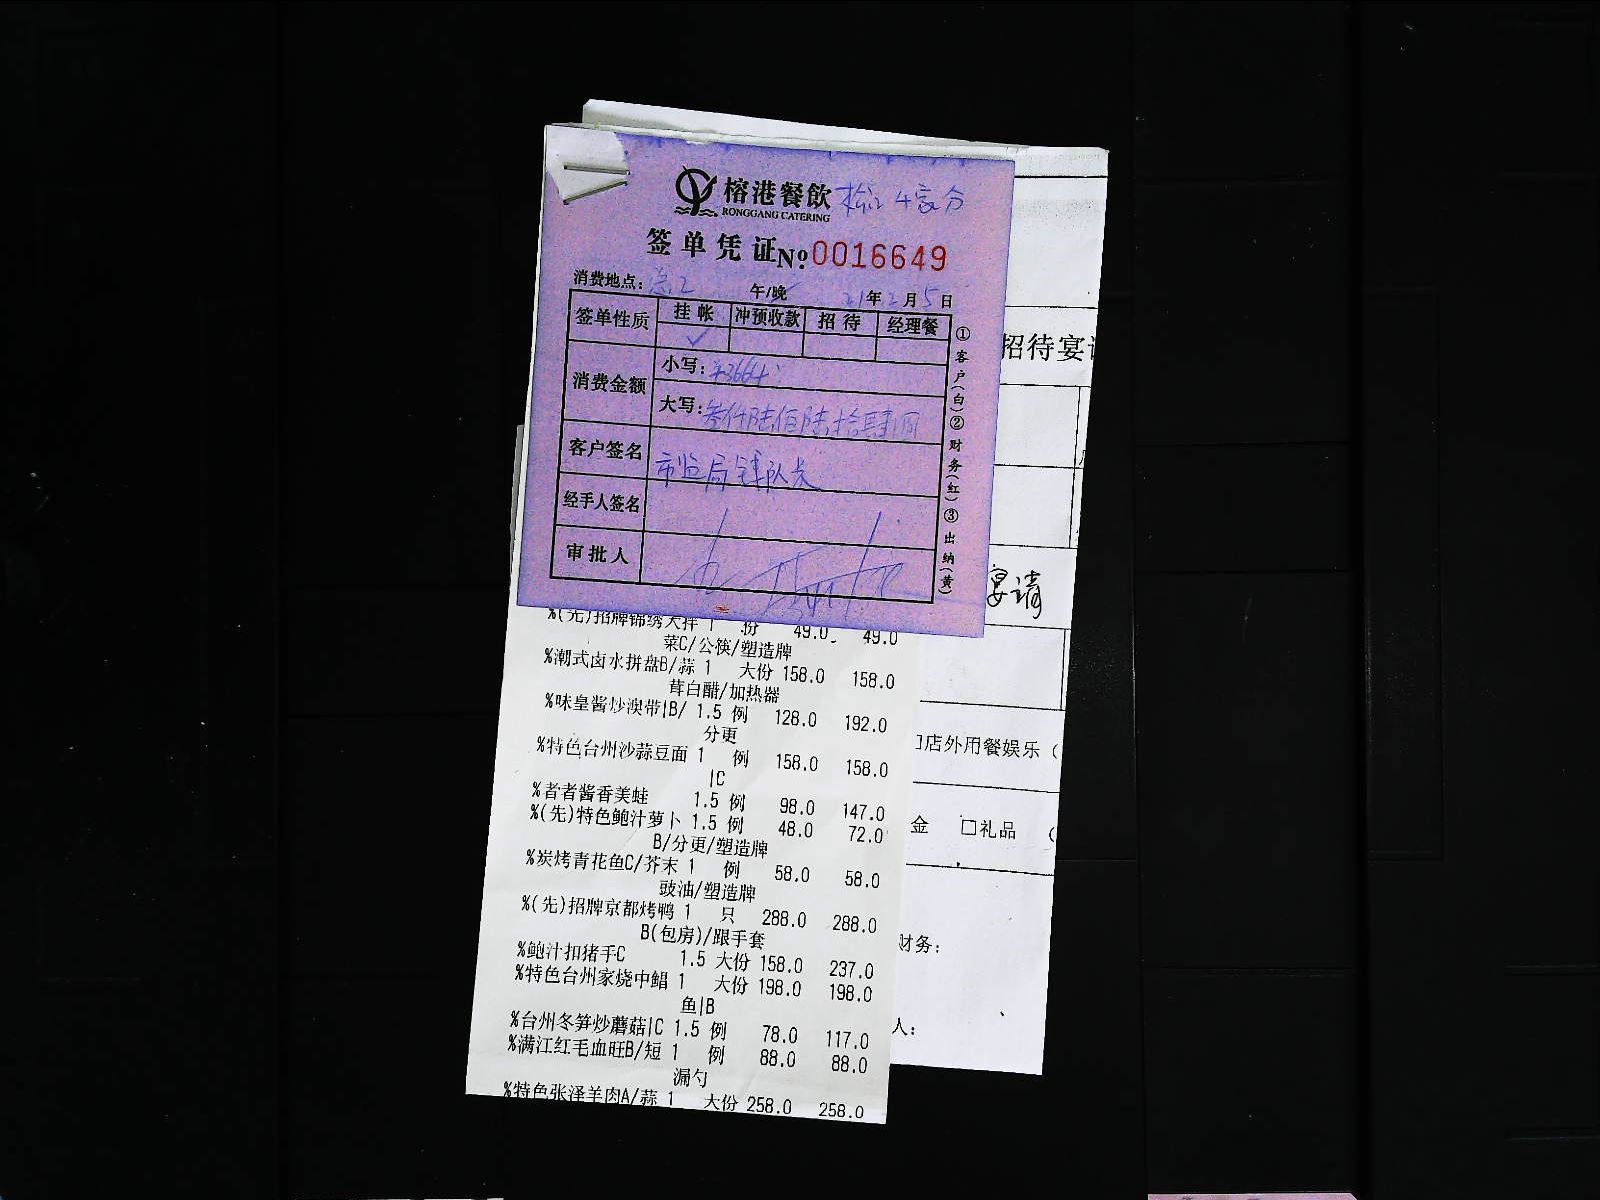 榕港餐飲
RONGGANG CATERING
签单凭证 Nº 0016649
消费地点: 午/晚 21年2月5日
签单性质 挂帐 冲预收款 招待 经理餐
✓
消费金额 小写: ¥3664
大写: 叁仟陆佰陆拾肆圆
客户签名 市监局钱队长
经手人签名
审批人
①客户(白)②财务(红)③出纳(黄)
招待宴请
宴请
口店外用餐娱乐 (
金 □礼品 (
财务:
人:
%(先)招牌锦绣大拌 1 份 49.0 49.0
菜C/公筷/塑造牌
%潮式卤水拼盘B/蒜 1 大份 158.0 158.0
茸白醋/加热器
%味皇酱炒澳带|B/ 1.5 例 128.0 192.0
分更
%特色台州沙蒜豆面 1 例 158.0 158.0
|C
%者者酱香美蛙 1.5 例 98.0 147.0
%(先)特色鲍汁萝卜 1.5 例 48.0 72.0
B/分更/塑造牌
%炭烤青花鱼C/芥末 1 例 58.0 58.0
豉油/塑造牌
%(先)招牌京都烤鸭 1 只 288.0 288.0
B(包房)/跟手套
%鲍汁扣猪手C 1.5 大份 158.0 237.0
%特色台州家烧中鲳 1 大份 198.0 198.0
鱼|B
%台州冬笋炒蘑菇|C 1.5 例 78.0 117.0
%满江红毛血旺B/短 1 例 88.0 88.0
漏勺
%特色张泽羊肉A/蒜 1 大份 258.0 258.0